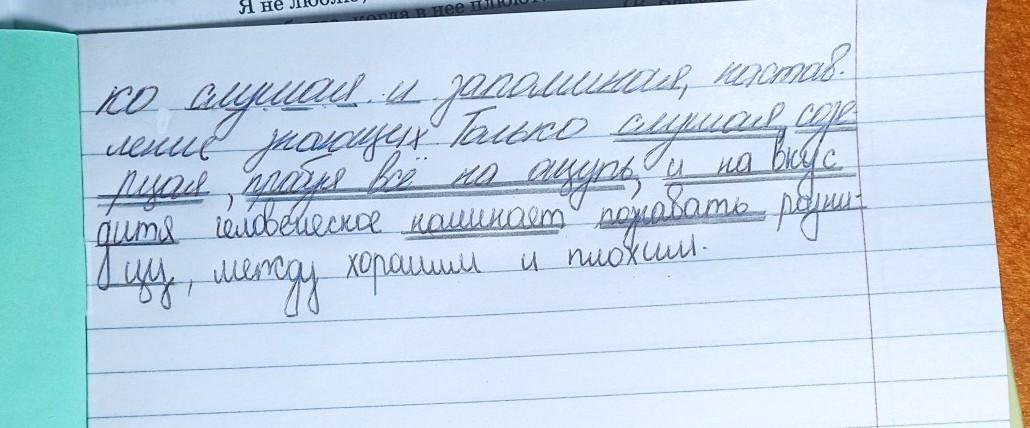 Я не люблю,
когда в нее плюют
ко слушая и запоминая, настав-
ление знающих Только слушая созе-
рцая, пробуя всё на ощупь, и на вкус
дитя человеческое начинает познавать разни-
цу, между хорашим и плохим.